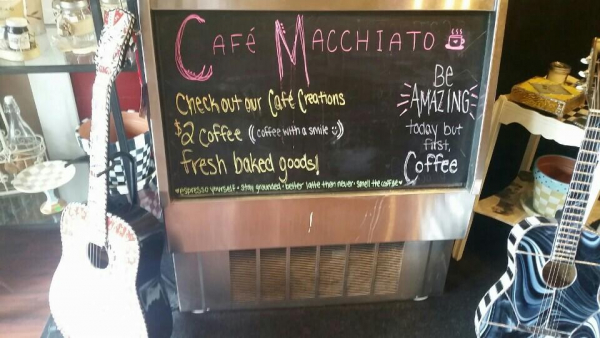 Café Macchiato
Check out our Café Creations
$2 coffee (coffee with a smile :))
fresh baked goods!
♥espresso yourself • stay grounded • better latte than never • smell the coffee♥
Be
AMAZING
today but
first,
Coffee